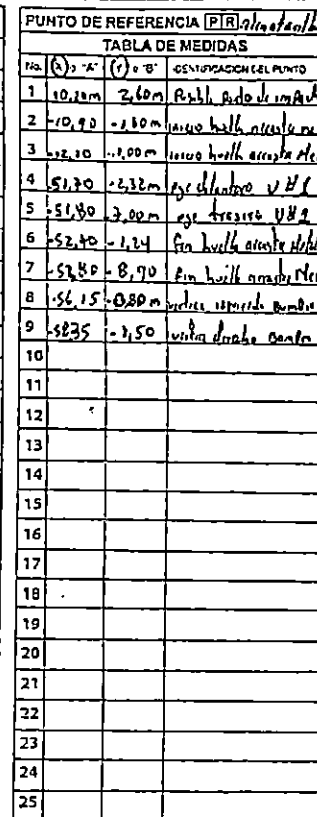 PUNTO DE REFERENCIA P R
TABLA DE MEDIDAS
No. (X) o "A" (Y) o "B" IDENTIFICACION DEL PUNTO
1 10,20m 2,60m Posible Punto de impacto
2 -10,90 -1,80m inicio huella arrastre
3 -12,10 -1,00m inicio huella arrastre
4 -51,70 -2,32m eje delantero V#1
5 -51,80 -3,00m eje trasero V#1
6 -52,40 -1,24 fin huella arrastre
7 -52,80 -8,90 fin huella arrastre
8 -56,15 -0,80m vertice izquierdo
9 -5835 -3,50 vertice derecho
10
11
12
13
14
15
16
17
18
19
20
21
22
23
24
25